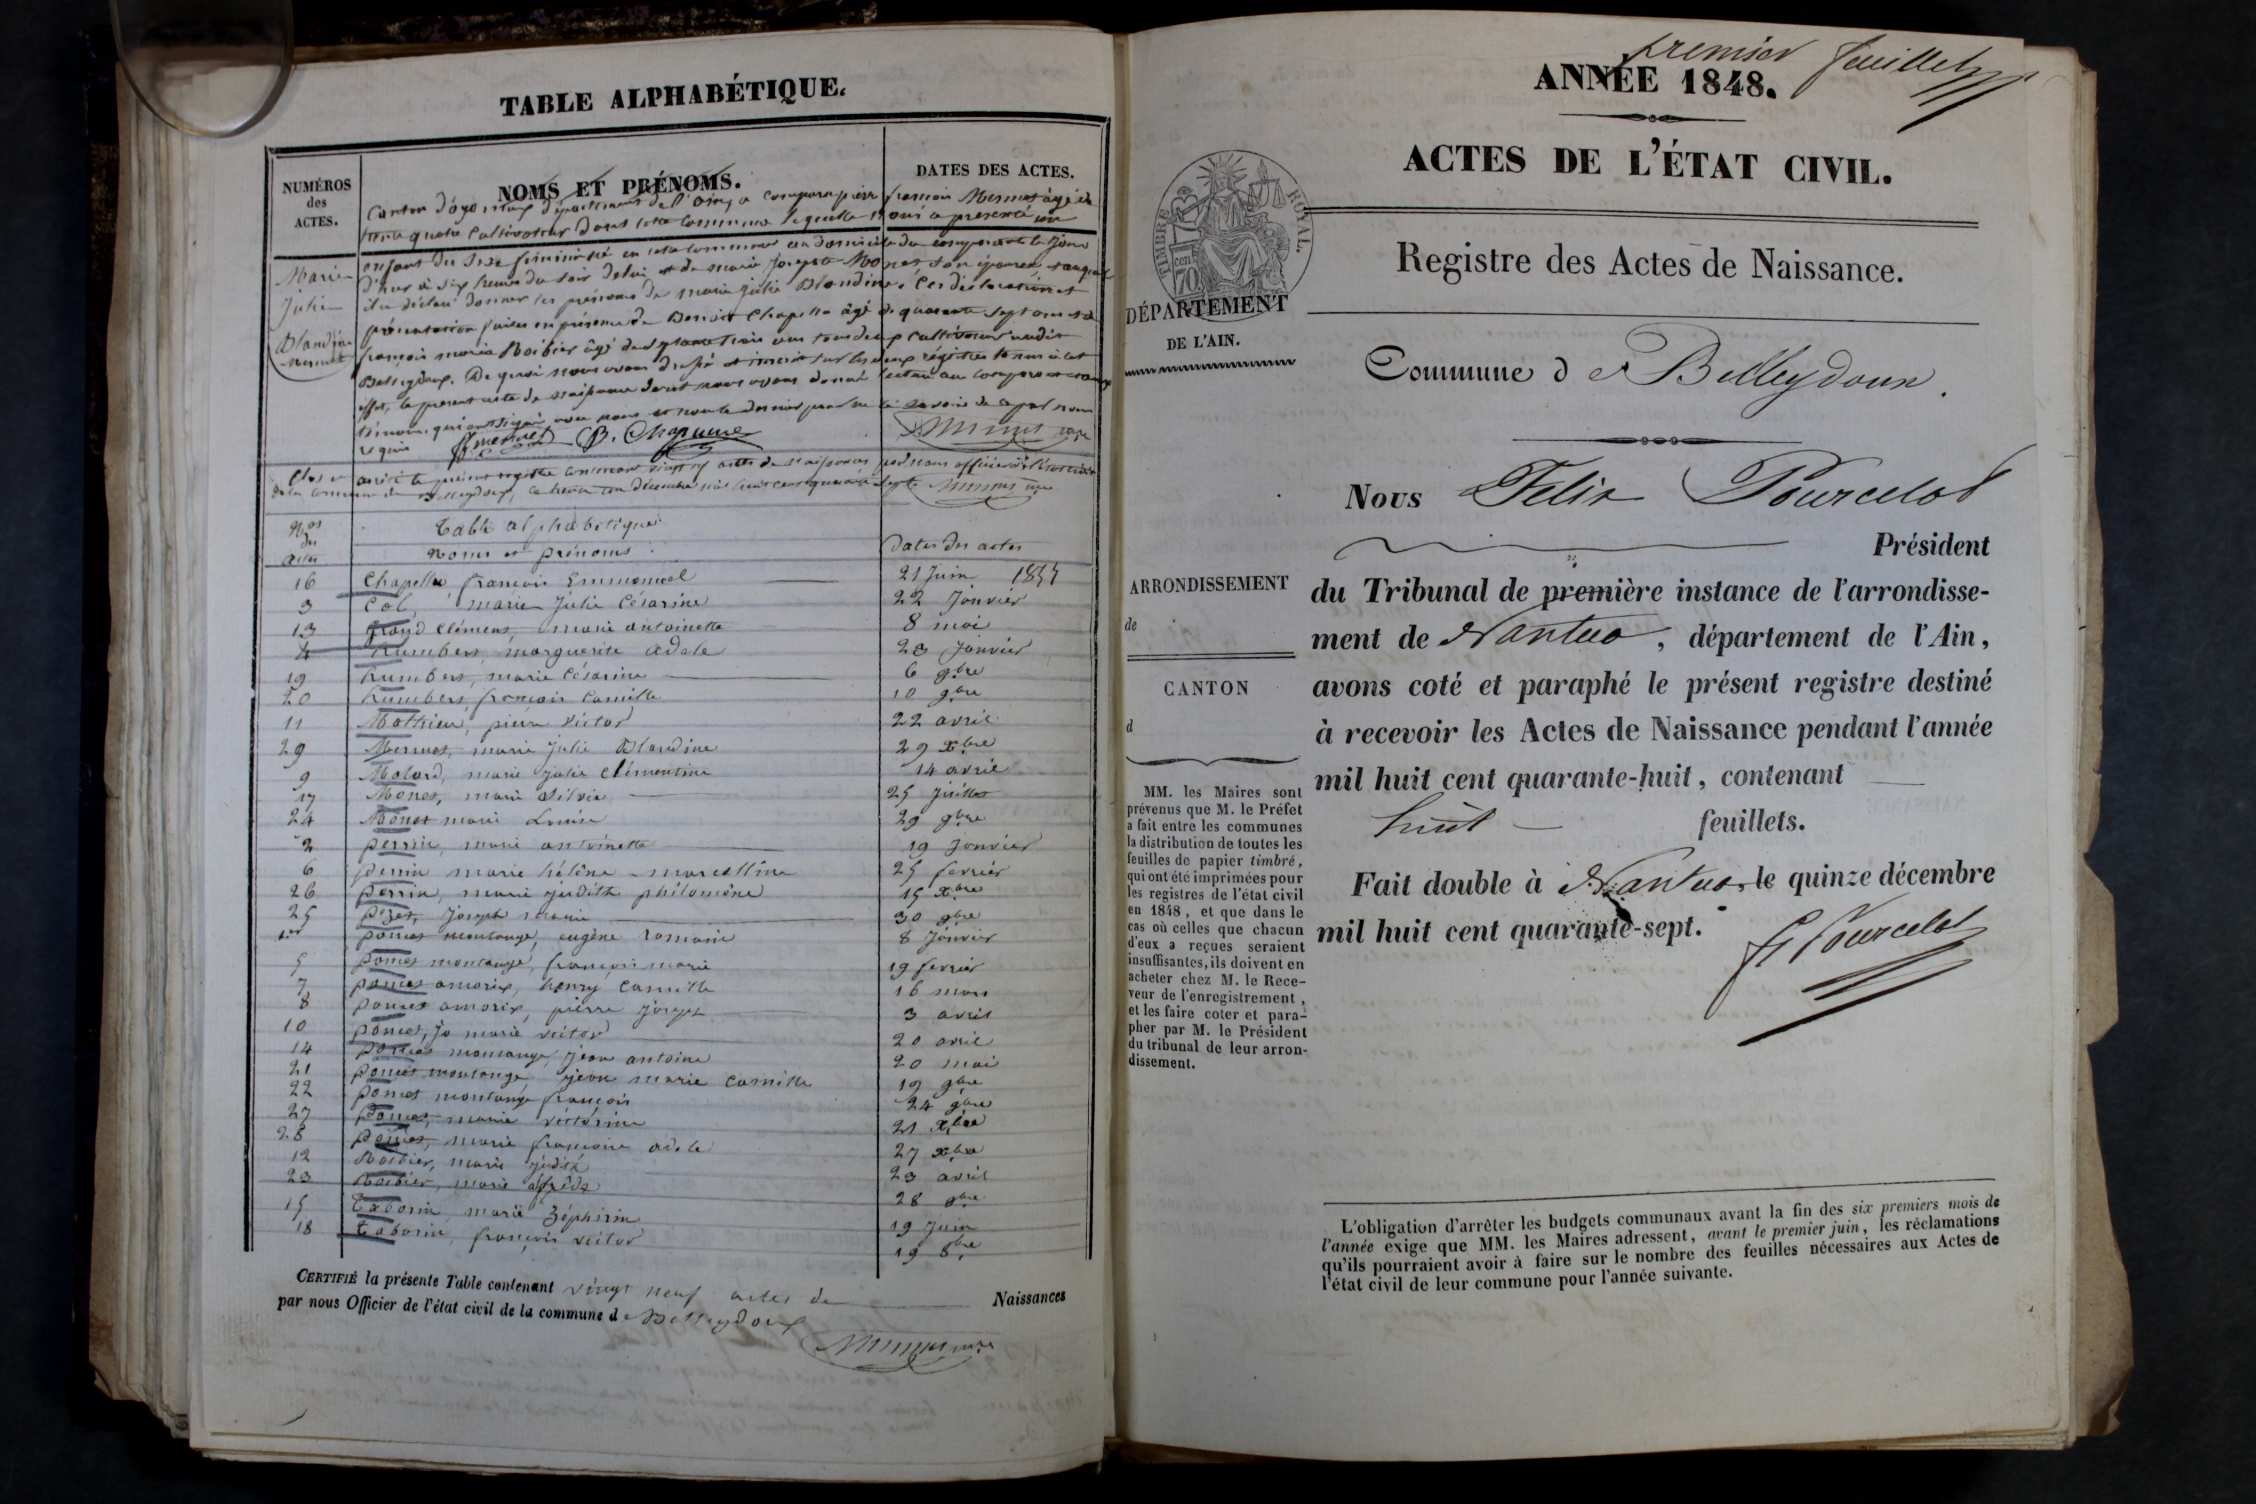 TABLE ALPHABÉTIQUE.
NUMÉROS des ACTES.
NOMS ET PRÉNOMS.
DATES DES ACTES.
Canton d'oyonnax département de l'ain, a comparu pierre françois Mermet âgé de
trente quatre cultivateur dont cette commune lequel nous a présenté un
enfant du sexe féminin né en cette commune au domicile du comparant le jour
d'hier à six heures du soir de lui et de marie josephte Monet son épouse, auquel
il a déclaré donner les prénoms de marie julie Blandine. Ces déclaration et
présentation faites en présence de Benoit Chapelle âgé de quarante sept ans et de
françois marie Roibier âgé de ans tous deux cultivateurs audit
Belleydoux. De quoi nous avons dressé et inscrit sur les deux régistres tenus à cet
effet, le présent acte de naissance dont nous avons donné lecture au comparant et aux
témoins qui ont signé avec nous et non le dernier pour ne le savoir de ce par nous
requis
Marie
Julie
Blandine
Mermet
B. Chapelle
Clos et arrêté le présent registre contenant vingt neuf actes de naissances par nous officier de l'état civil
de la commune de Belleydoux, le trente un décembre mil huit cent quarante sept
Nos des actes
Table alphabétique
Noms et prénoms
Dates des actes
16 Chapelle, françois Emmanuel 21 Juin 1847
3 Col, marie Julie Césarine 22 Janvier
13 grand Clément, marie antoinette 8 mai
4 humbert, marguerite adele 28 Janvier
19 humbert, marie Césarine 6 9bre
20 humbert, françois Camille 10 9bre
11 Mathieu, pierre victor 22 avril
29 Mermet, marie Julie Blandine 29 xbre
9 Molard, marie Julie Clémentine 14 avril
17 Monet, marie Silvie 25 Juillet
24 Monet marie Louise 29 9bre
2 perrin, marie antoinette 19 Janvier
6 perrin marie hélène marcelline 25 fevrier
26 perrin, marie judith philomène 15 xbre
25 pizet, Joseph marie 30 9bre
1er poncet montange, eugène romain 8 Janvier
5 poncet montange, françois marie 19 fevrier
7 poncet amorix, henry Camille 16 mars
8 poncet amorix, pierre Joseph 3 avril
10 poncet, Jo marie victor 20 avril
14 poncet montange, jean antoine 20 mai
21 poncet montange jean marie Camille 19 9bre
22 poncet montange françois 24 9bre
27 poncet, marie victorine 21 xbre
28 poncet, marie françoise adele 27 xbre
12 Roibier, marie judith 23 avril
23 Roibier, marie 28 9bre
15 Taborin marie Zéphirin 19 Juin
18 Taborin, françois victor 19 8bre
CERTIFIÉ la présente Table contenant vingt neuf actes de Naissances
par nous Officier de l'état civil de la commune de Belleydoux
premier feuillet
ANNÉE 1848.
ACTES DE L'ÉTAT CIVIL.
TIMBRE ROYAL.
70 cen
DÉPARTEMENT
DE L'AIN.
Registre des Actes de Naissance.
Commune de Belleydoux.
Nous Felix Pourcelot
Président
du Tribunal de première instance de l'arrondisse-
ment de Nantua, département de l'Ain,
avons coté et paraphé le présent registre destiné
à recevoir les Actes de Naissance pendant l'année
mil huit cent quarante-huit, contenant
huit feuillets.
Fait double à Nantua, le quinze décembre
mil huit cent quarante-sept.
F Pourcelot
ARRONDISSEMENT
de
CANTON
d
MM. les Maires sont
prévenus que M. le Préfet
a fait entre les communes
la distribution de toutes les
feuilles de papier timbré,
qui ont été imprimées pour
les registres de l'état civil
en 1848, et que dans le
cas où celles que chacun
d'eux a reçues seraient
insuffisantes, ils doivent en
acheter chez M. le Rece-
veur de l'enregistrement,
et les faire coter et para-
pher par M. le Président
du tribunal de leur arron-
dissement.
L'obligation d'arrêter les budgets communaux avant la fin des six premiers mois de
l'année exige que MM. les Maires adressent, avant le premier juin, les réclamations
qu'ils pourraient avoir à faire sur le nombre des feuilles nécessaires aux Actes de
l'état civil de leur commune pour l'année suivante.